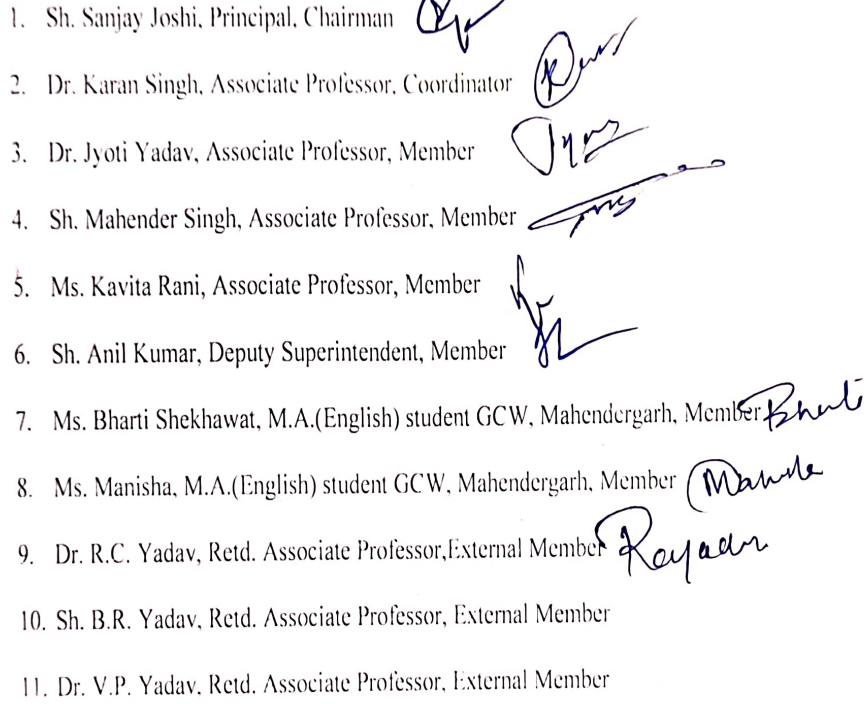 1. Sh. Sanjay Joshi, Principal, Chairman
2. Dr. Karan Singh, Associate Professor, Coordinator
3. Dr. Jyoti Yadav, Associate Professor, Member
4. Sh. Mahender Singh, Associate Professor, Member
5. Ms. Kavita Rani, Associate Professor, Member
6. Sh. Anil Kumar, Deputy Superintendent, Member
7. Ms. Bharti Shekhawat, M.A.(English) student GCW, Mahendergarh, Member
8. Ms. Manisha, M.A.(English) student GCW, Mahendergarh, Member
9. Dr. R.C. Yadav, Retd. Associate Professor,External Member
10. Sh. B.R. Yadav, Retd. Associate Professor, External Member
11. Dr. V.P. Yadav, Retd. Associate Professor, External Member